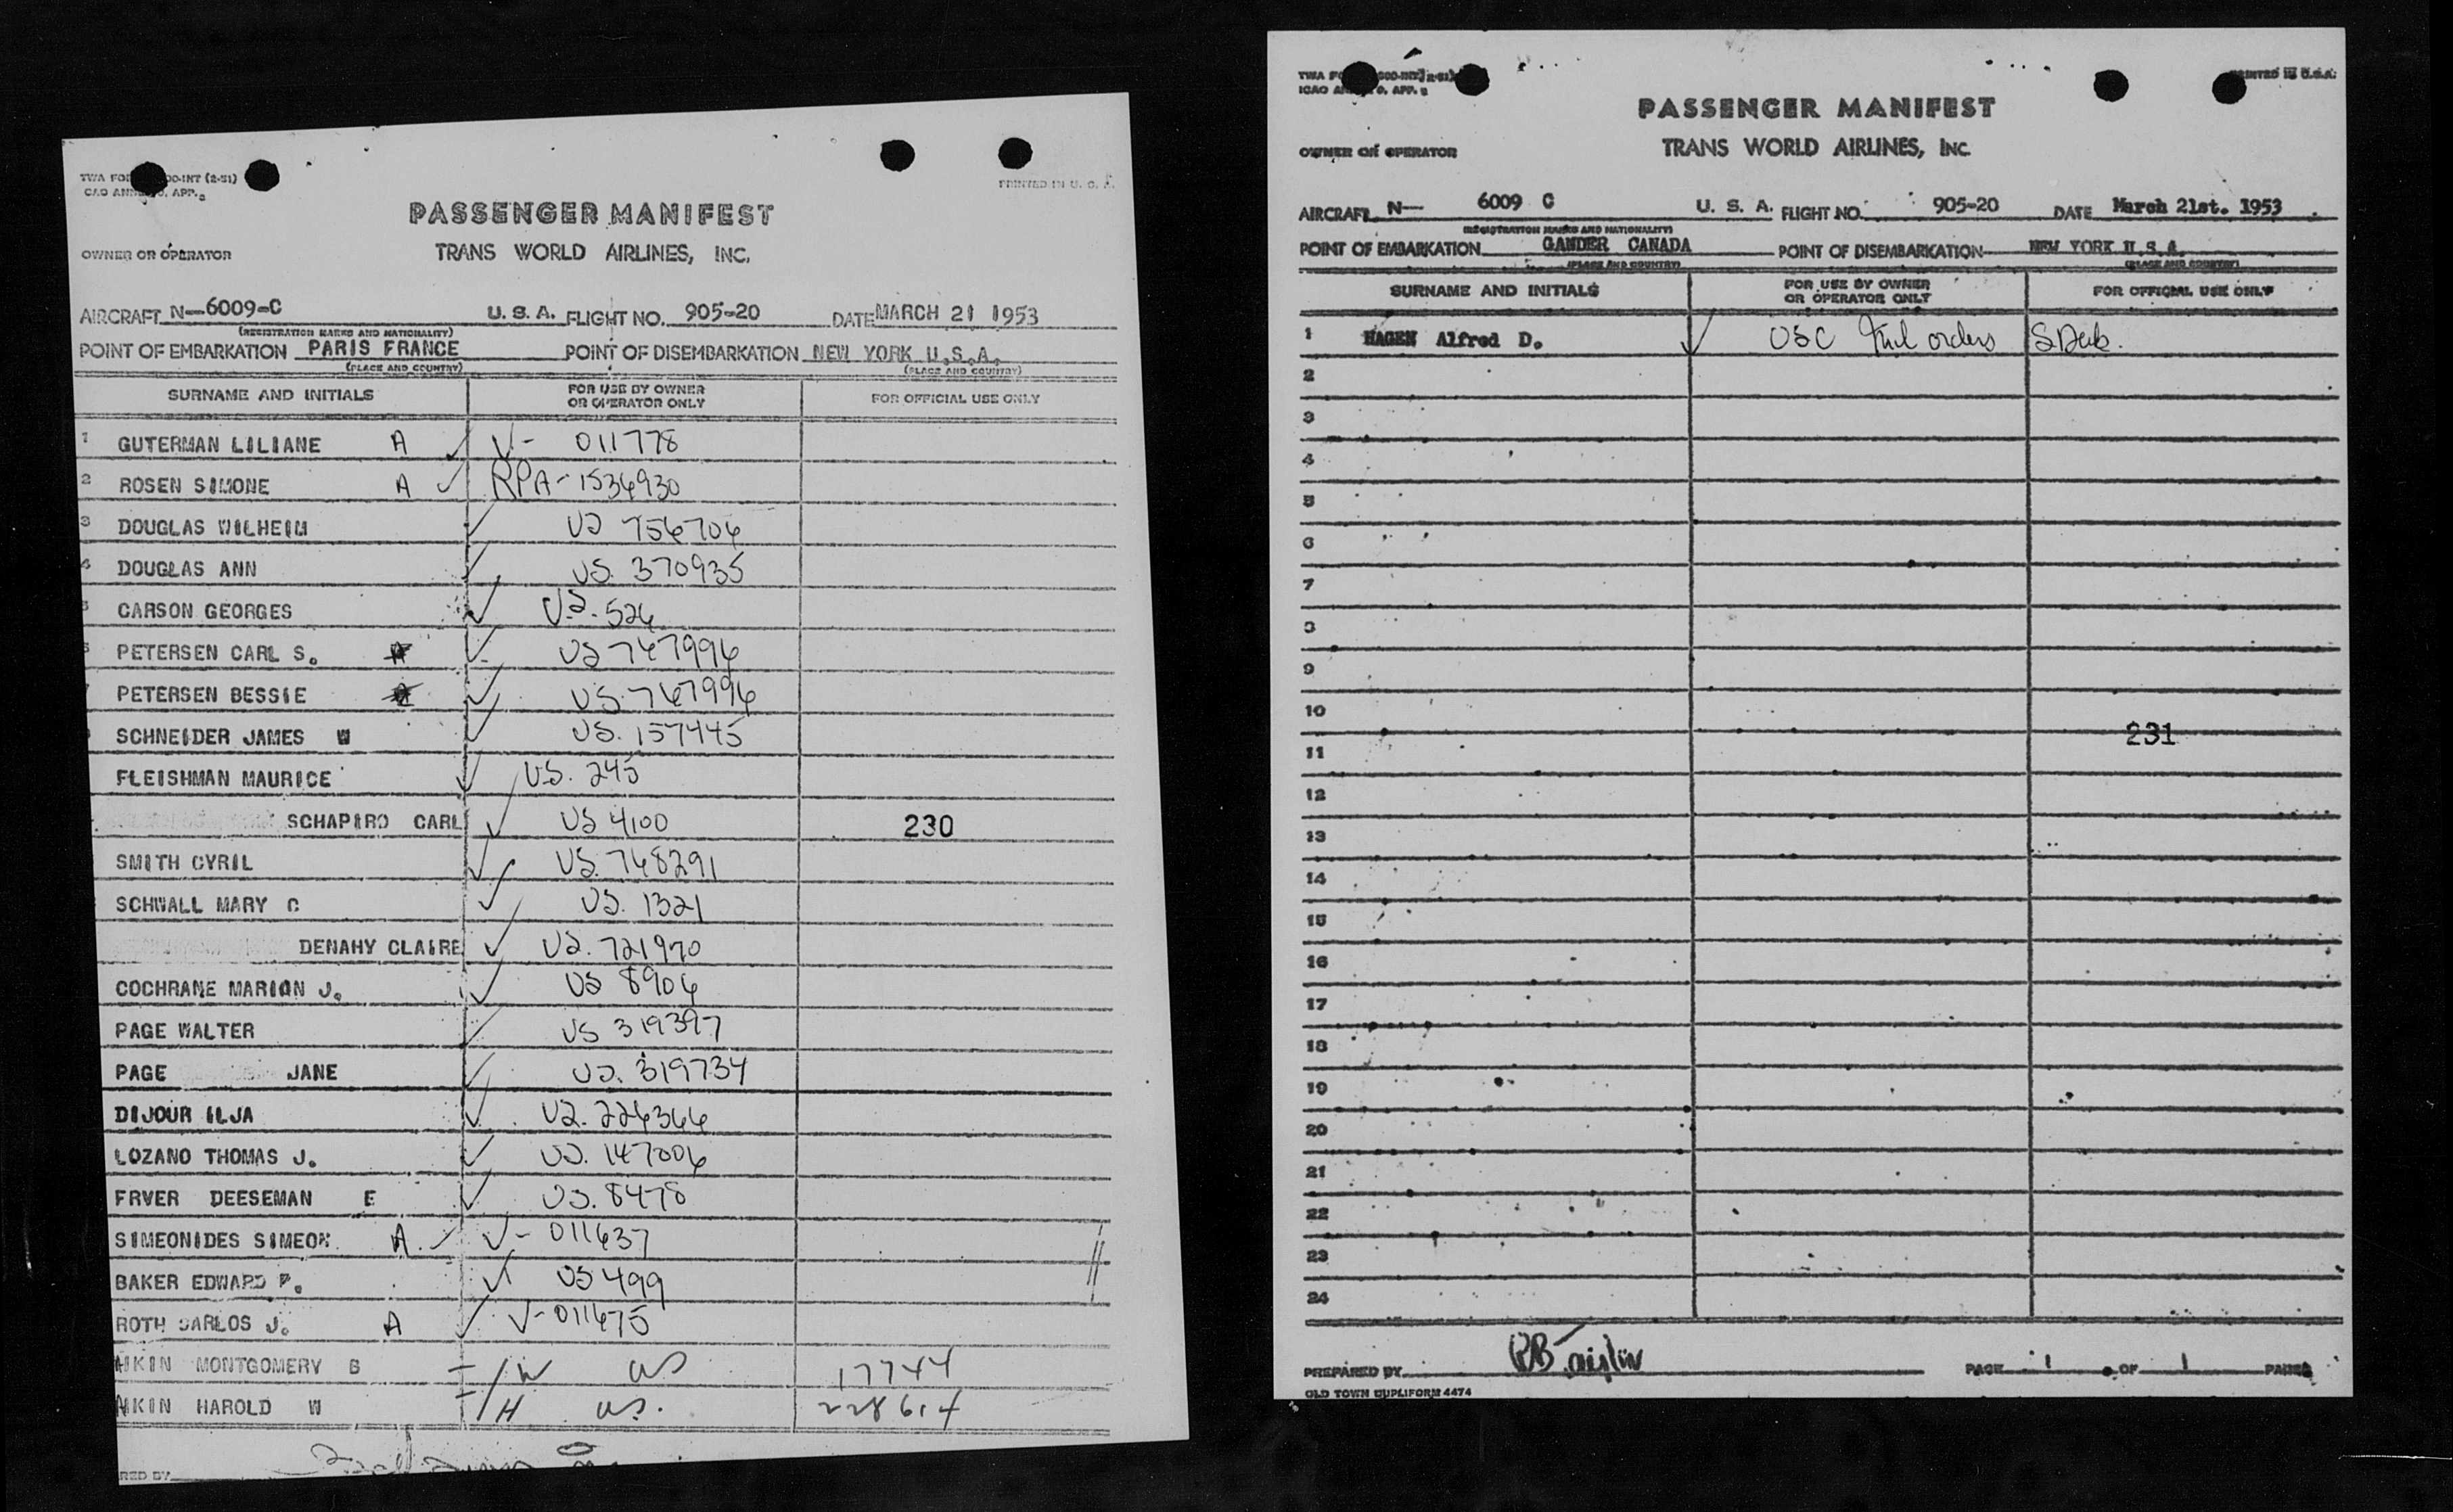 PASSENGER MANIFEST
OWNER OR OPERATOR TRANS WORLD AIRLINES, INC.
PRINTED IN U. S. A.
AIRCRAFT N—6009-C U. S. A. FLIGHT NO. 905-20 DATE MARCH 21 1953
(REGISTRATION MARKS AND NATIONALITY)
POINT OF EMBARKATION PARIS FRANCE POINT OF DISEMBARKATION NEW YORK U.S.A.
(PLACE AND COUNTRY) (PLACE AND COUNTRY)
SURNAME AND INITIALS FOR USE BY OWNER OR OPERATOR ONLY FOR OFFICIAL USE ONLY
1 GUTERMAN LILIANE A V- 011778
2 ROSEN SIMONE A RPA-1534930
3 DOUGLAS WILHEIM US 756704
4 DOUGLAS ANN US. 370935
5 CARSON GEORGES US. 526
PETERSEN CARL S. US 747996
PETERSEN BESSIE US. 747996
SCHNEIDER JAMES W US. 157445
FLEISHMAN MAURICE US. 245
SCHAPIRO CARL US 4100 230
SMITH CYRIL US. 748291
SCHWALL MARY C US. 1321
DENAHY CLAIRE US. 721970
COCHRANE MARION J. US 8906
PAGE WALTER US 319397
PAGE JANE US. 319734
DIJOUR ILJA US. 226366
LOZANO THOMAS J. US. 147006
FRVER DEESEMAN E US. 8478
SIMEONIDES SIMEON A V- 011637
BAKER EDWARD P. US 499
ROTH CARLOS J. A V-011675
AIKIN MONTGOMERY B W US 17744
AIKIN HAROLD W H US. 228614
RED BY
PRINTED IN U.S.A.
PASSENGER MANIFEST
OWNER OR OPERATOR TRANS WORLD AIRLINES, INC.
AIRCRAFT N— 6009 C U. S. A. FLIGHT NO. 905-20 DATE March 21st. 1953
(REGISTRATION MARKS AND NATIONALITY)
POINT OF EMBARKATION GANDER CANADA POINT OF DISEMBARKATION NEW YORK U.S.A.
(PLACE AND COUNTRY) (PLACE AND COUNTRY)
SURNAME AND INITIALS FOR USE BY OWNER OR OPERATOR ONLY FOR OFFICIAL USE ONLY
1 HAGEN Alfred D. USC orders
2
3
4
5
6
7
8
9
10
231
11
12
13
14
15
16
17
18
19
20
21
22
23
24
PREPARED BY PAGE 1 OF 1 PAGES
OLD TOWN DUPLIFORM 4474